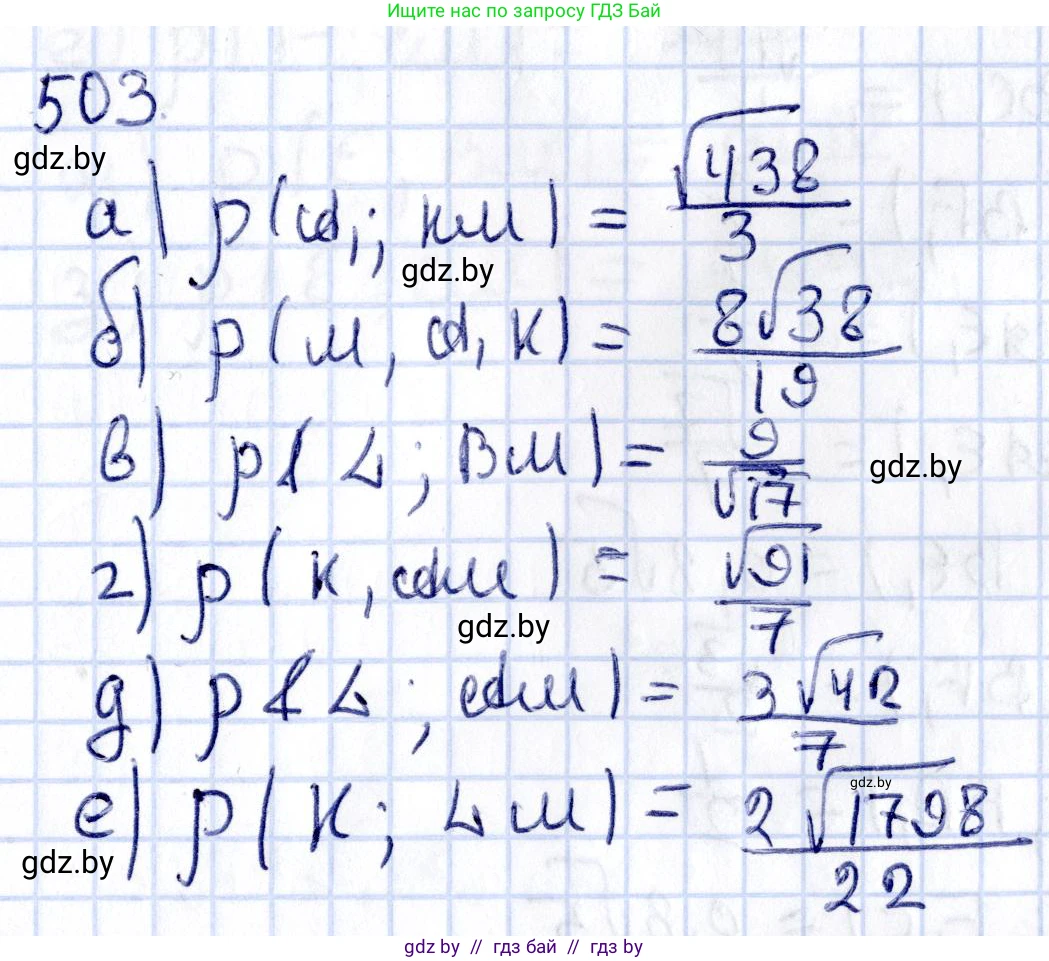 Ищите нас по запросу ГДЗ Бай
503.
gdz.by
а) p(A; КМ) = √438/3
gdz.by
б) p(М, A, К) = 8√38/19
в) p(L; ВМ) = 9/√17
gdz.by
г) p(К, AМ) = √91/7
gdz.by
д) p(L; AМ) = 3√42/7
gdz.by
е) p(К; LМ) = 2√1798/22
gdz.by
gdz.by // гдз бай // гдз by